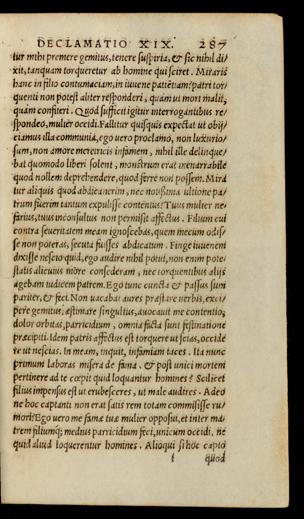 DECLAMATIO XIX. 287
tur mihi premere gemitus, tenere suspiria, & sic nihil di/
xit, tanquam torqueretur ab homine qui sciret. Miraris
hanc in filio contumaciam, in iuuene patientiam? patri tor/
quenti non potest aliter responderi, quàm ut mori malit,
quàm confiteri. Quod sufficit igitur interrogantibus re/
spondeo, mulier occidi. Fallitur quisquis expectat ut obij/
ciamus illa communia, ego uero proclamo, non luxurio/
sum, non amore meretricis infamem, nihil ille delinque/
bat quomodo liberi solent, monstrum erat inenarrabile
quod nollem deprehendere, quod ferre non possem. Mira
tur aliquis quod abdicauerim, nec nouissima ultione pa/
trum fuerim tantum expulisse contentus? Tuus mulier ne/
farius, tuus inconsultus non permisit affectus. Filium cui
contra seueritatem meam ignoscebas, quem mecum odis/
se non poteras, secuta fuisses abdicatum. Finge iuuenem
dixisse nescio quid, ego audire nihil potui, non enim pote/
statis alicuius more confederam, nec torquentibus alijs
agebam iudicem patrem. Ego tunc cuncta & passus sum
pariter, & feci. Non uacabat aures præstare uerbis, exci/
pere gemitus, æstimare singultus, auocauit me contentio,
dolor orbitas, parricidium, omnia facta sunt festinatione
præcipiti. Idem patris affectus est torquere ut scias, occide
re ut nescias. In me am, inquit, infamiam taces. Ita nunc
primum laboras misera de fama, & post unici mortem
pertinere ad te cœpit quid loquantur homines? Scilicet
filius impensus est ut erubesceres, ut male audires. Adeo
ne hoc captanti non erat satis rem totam commisisse ru/
mori? Ego uero me famæ tuæ mulier opposui, et inter ma/
trem filiumq; medius parricidium feci, unicum occidi, ne
quid aliud loquerentur homines. Alioqui si hoc capto
quod